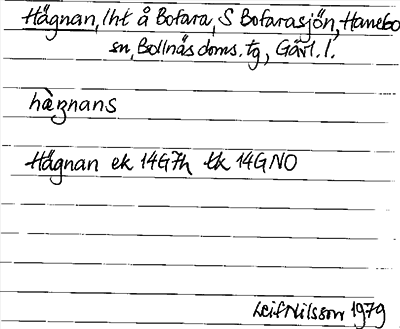 Hägnan, lht å Bofara, S Bofarasjön, Hanebo
sn, Bollnäs doms. tg, Gävl. l.
hàgnans
Hägnan ek 14G7h tk 14GNO
Leif Nilsson 1979